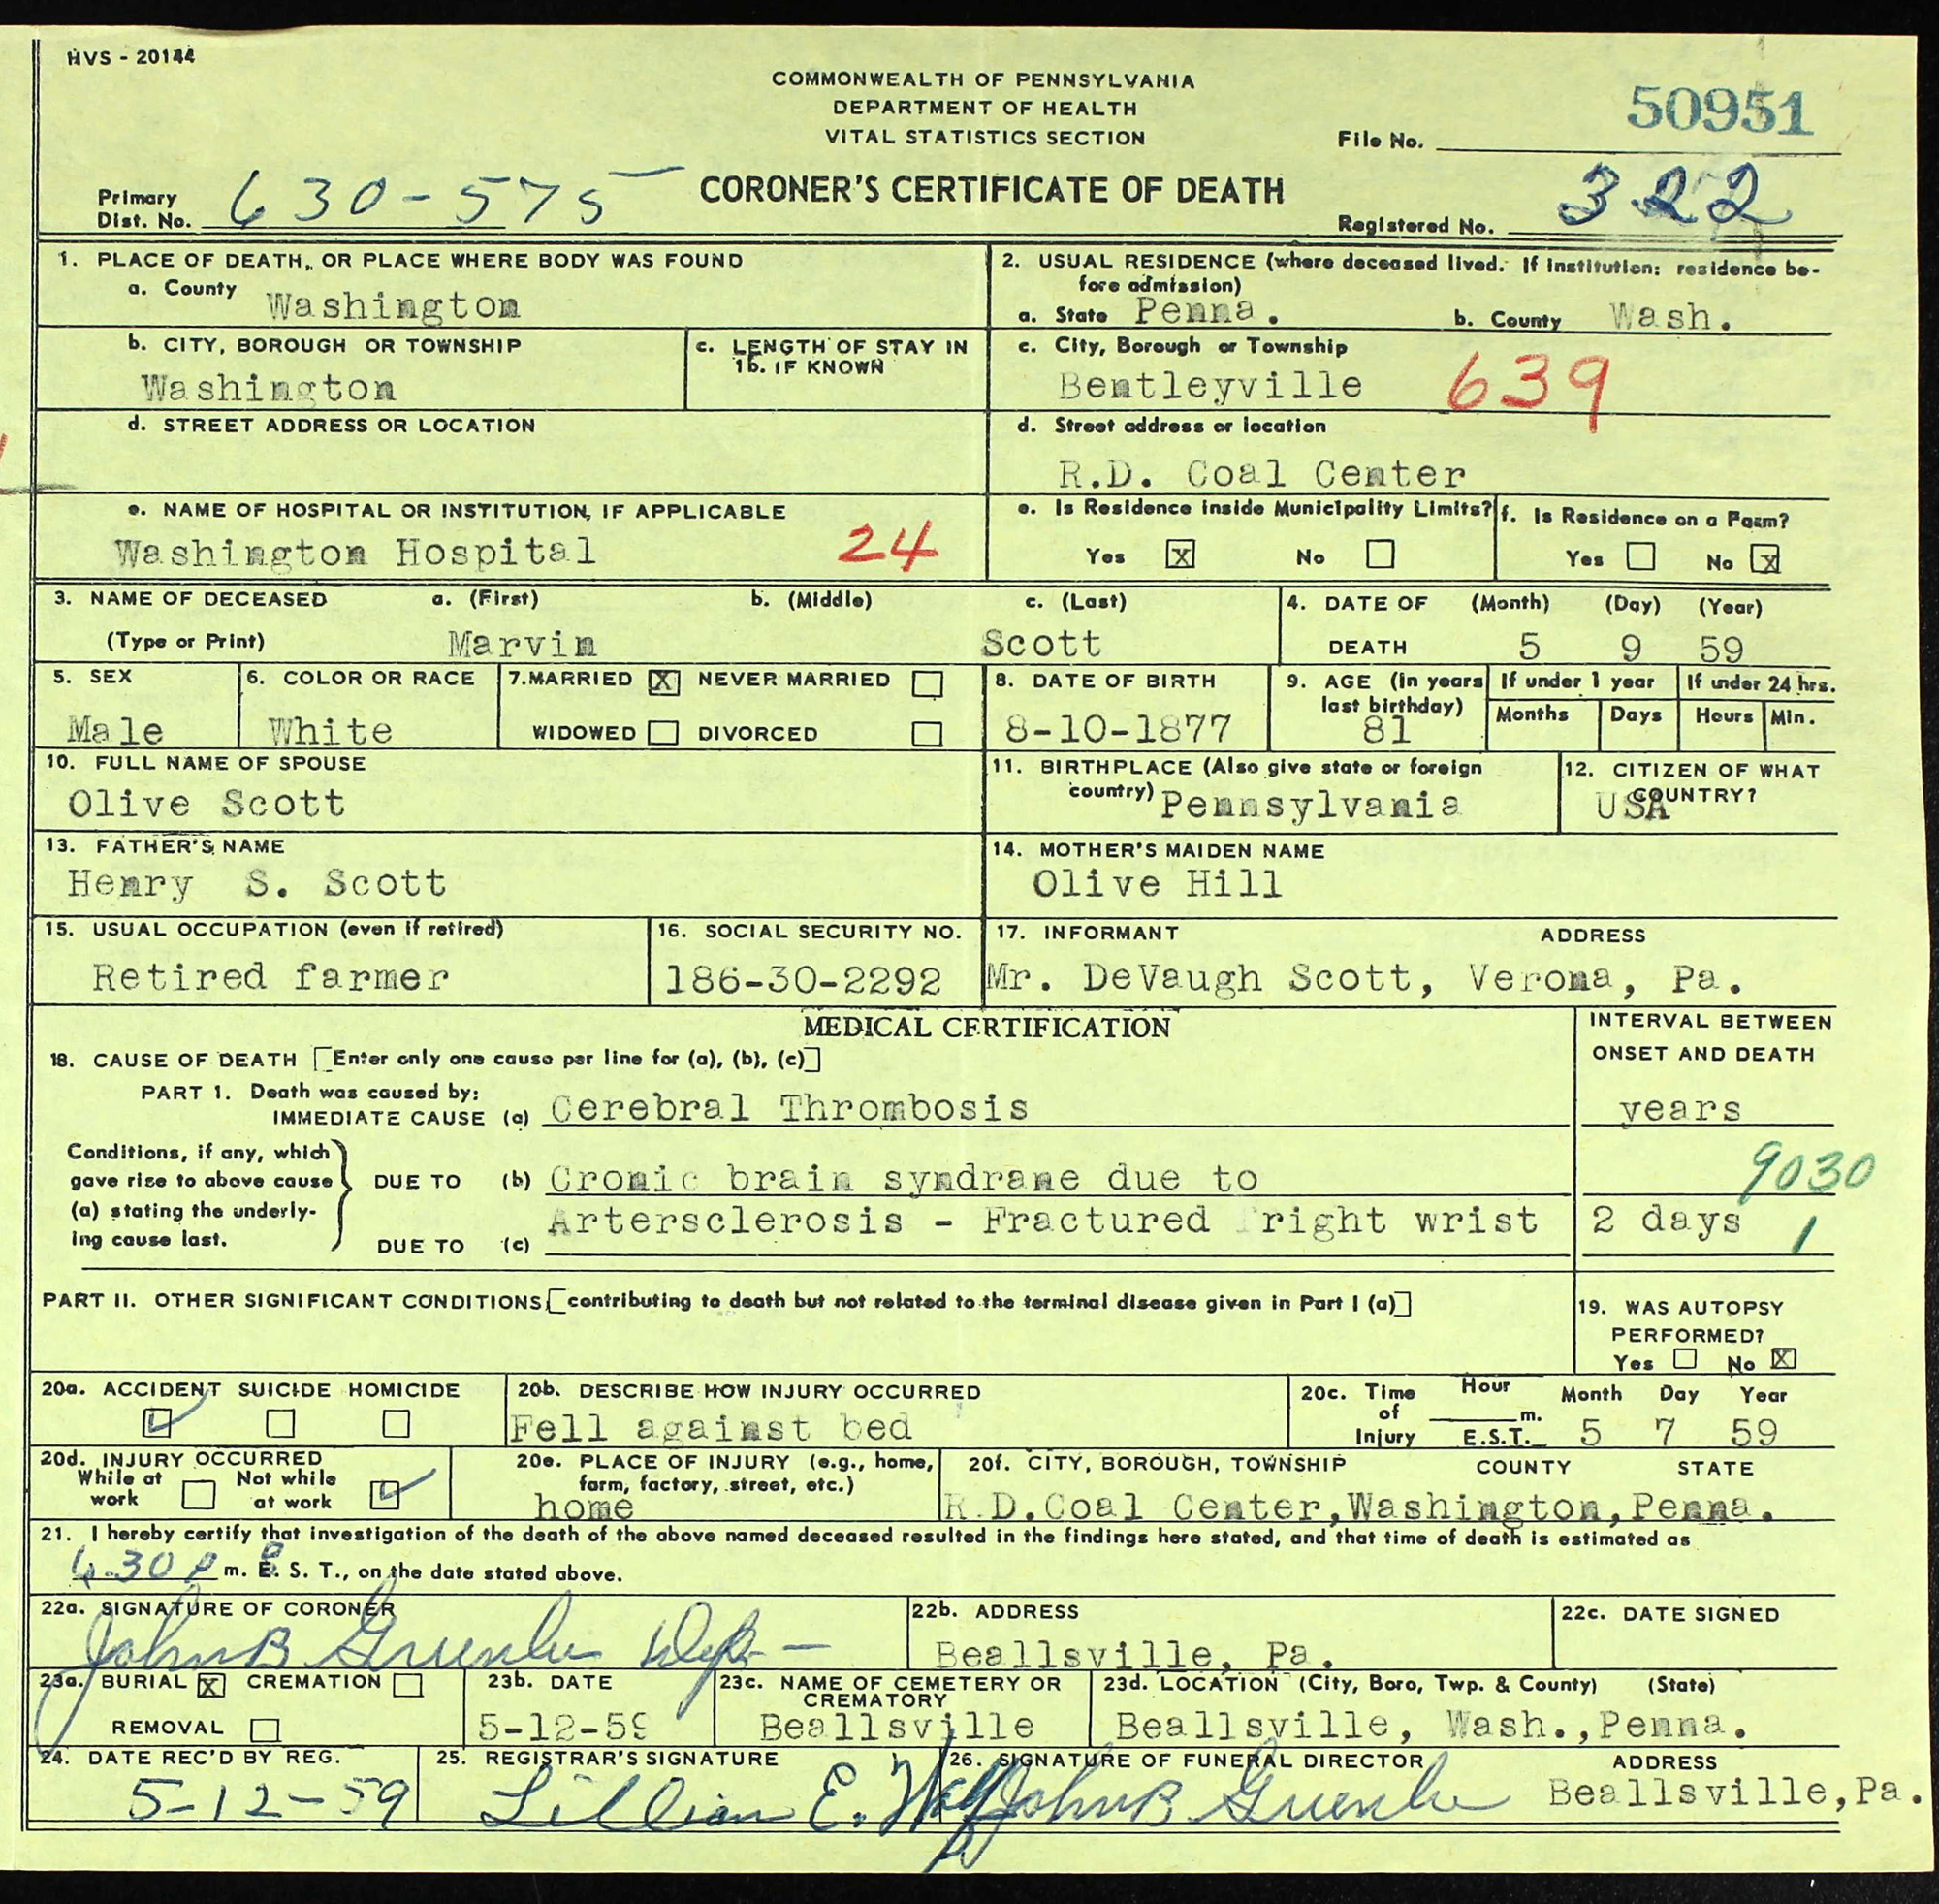 HVS - 20144
COMMONWEALTH OF PENNSYLVANIA
DEPARTMENT OF HEALTH
VITAL STATISTICS SECTION
File No. 50951
Primary Dist. No. 630-575
CORONER'S CERTIFICATE OF DEATH
Registered No. 322
1. PLACE OF DEATH, OR PLACE WHERE BODY WAS FOUND
a. County Washington
2. USUAL RESIDENCE (where deceased lived. If institution: residence be-
fore admission)
a. State Penna. b. County Wash.
b. CITY, BOROUGH OR TOWNSHIP
Washington
c. LENGTH OF STAY IN
1b. IF KNOWN
c. City, Borough or Township
Bentleyville 639
d. STREET ADDRESS OR LOCATION
d. Street address or location
R.D. Coal Center
e. NAME OF HOSPITAL OR INSTITUTION, IF APPLICABLE
Washington Hospital 24
e. Is Residence inside Municipality Limits?
Yes X No
f. Is Residence on a Farm?
Yes No X
3. NAME OF DECEASED a. (First) b. (Middle) c. (Last)
(Type or Print) Marvin Scott
4. DATE OF (Month) (Day) (Year)
DEATH 5 9 59
5. SEX
Male
6. COLOR OR RACE
White
7. MARRIED X NEVER MARRIED
WIDOWED DIVORCED
8. DATE OF BIRTH
8-10-1877
9. AGE (in years
last birthday)
81
If under 1 year
Months Days
If under 24 hrs.
Hours Min.
10. FULL NAME OF SPOUSE
Olive Scott
11. BIRTHPLACE (Also give state or foreign
country) Pennsylvania
12. CITIZEN OF WHAT
COUNTRY?
USA
13. FATHER'S NAME
Henry S. Scott
14. MOTHER'S MAIDEN NAME
Olive Hill
15. USUAL OCCUPATION (even if retired)
Retired farmer
16. SOCIAL SECURITY NO.
186-30-2292
17. INFORMANT ADDRESS
Mr. DeVaugh Scott, Verona, Pa.
MEDICAL CERTIFICATION
INTERVAL BETWEEN
ONSET AND DEATH
18. CAUSE OF DEATH [Enter only one cause per line for (a), (b), (c)]
PART 1. Death was caused by:
IMMEDIATE CAUSE (a) Cerebral Thrombosis years
Conditions, if any, which
gave rise to above cause
(a) stating the underly-
ing cause last.
DUE TO (b) Cronic brain syndrane due to 9030
Artersclerosis - Fractured right wrist 2 days 1
DUE TO (c)
PART II. OTHER SIGNIFICANT CONDITIONS, [contributing to death but not related to the terminal disease given in Part I (a)]
19. WAS AUTOPSY
PERFORMED?
Yes No X
20a. ACCIDENT SUICIDE HOMICIDE
20b. DESCRIBE HOW INJURY OCCURRED
Fell against bed
20c. Time of Injury Hour m. E.S.T. Month Day Year
5 7 59
20d. INJURY OCCURRED
While at work Not while at work
20e. PLACE OF INJURY (e.g., home,
farm, factory, street, etc.)
home
20f. CITY, BOROUGH, TOWNSHIP COUNTY STATE
R.D.Coal Center,Washington,Penna.
21. I hereby certify that investigation of the death of the above named deceased resulted in the findings here stated, and that time of death is estimated as
m. S. T., on the date stated above.
22a. SIGNATURE OF CORONER
John B Greenlee
22b. ADDRESS
Beallsville, Pa.
22c. DATE SIGNED
23a. BURIAL X CREMATION
REMOVAL
23b. DATE
5-12-59
23c. NAME OF CEMETERY OR
CREMATORY
Beallsville
23d. LOCATION (City, Boro, Twp. & County) (State)
Beallsville, Wash.,Penna.
24. DATE REC'D BY REG.
5-12-59
25. REGISTRAR'S SIGNATURE
Lillian E.
26. SIGNATURE OF FUNERAL DIRECTOR ADDRESS
John B Greenlee Beallsville,Pa.